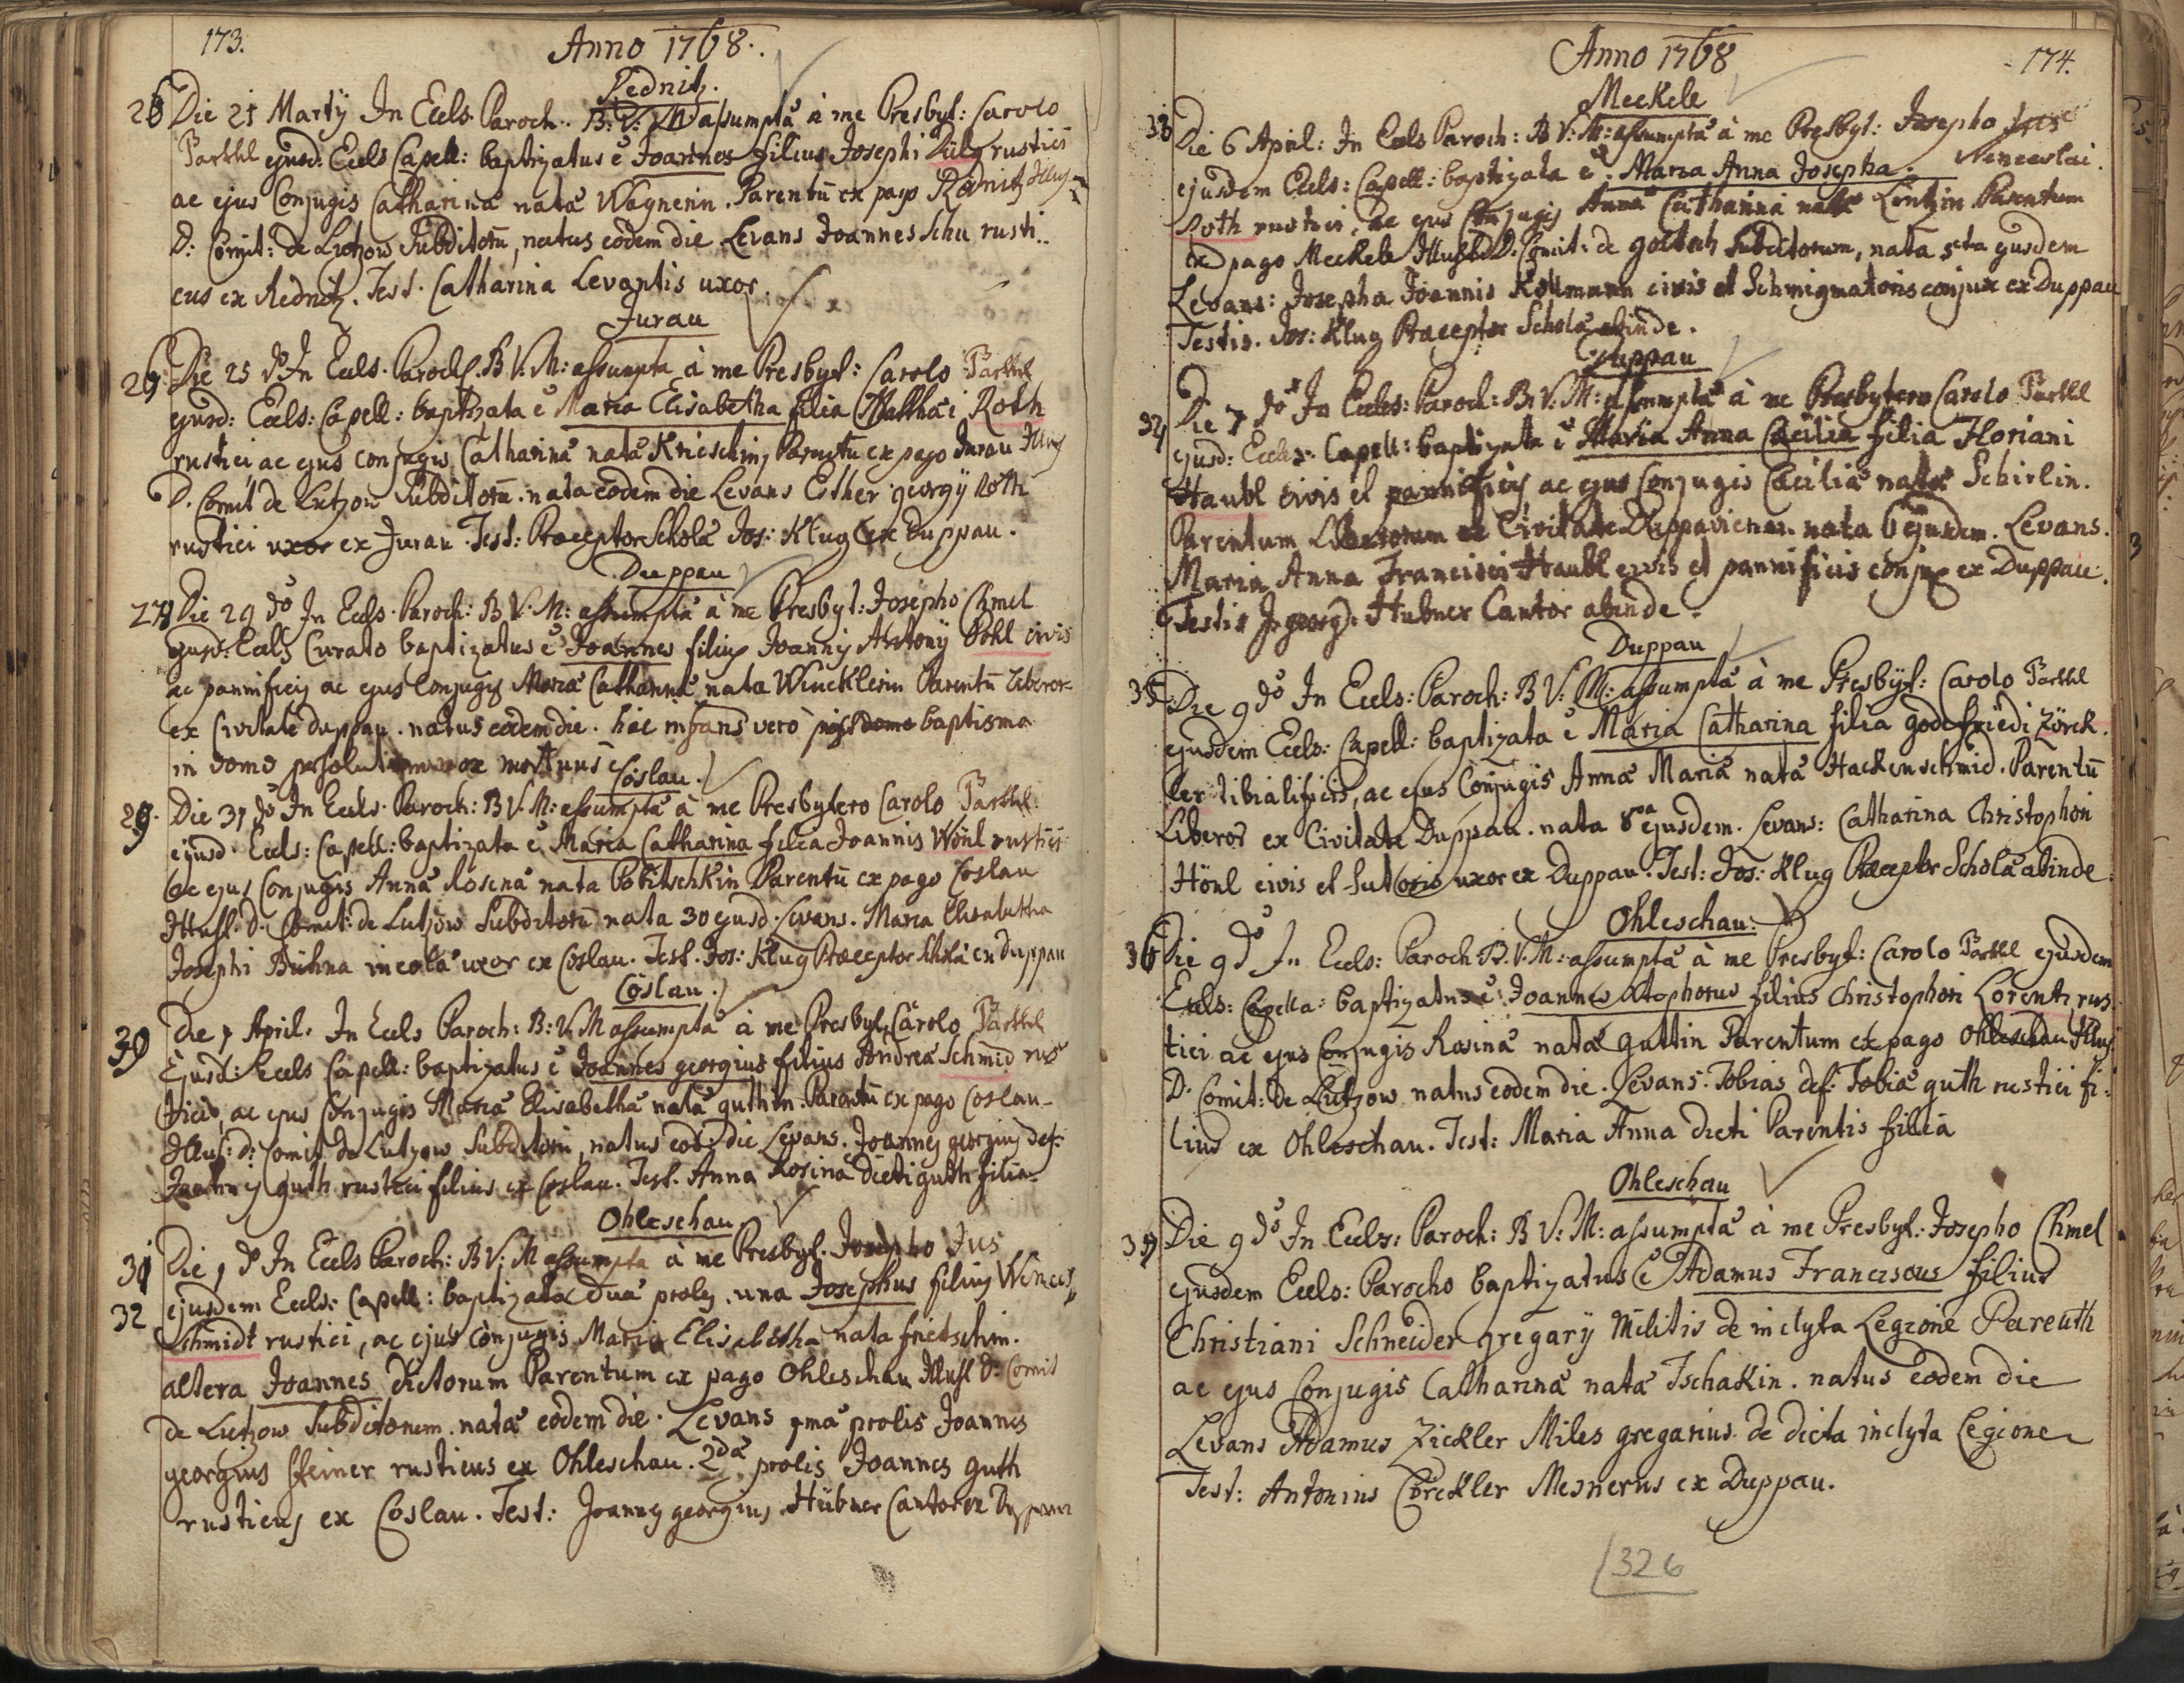 173.
Anno 1768.
Rednitz.
26 Die 21 Martÿ In Eccls. Paroch. B: V: M assumptâ à me Presbyt: Carolo
Parthl ejusd: Eccls Capell: baptizatus ē Joannes filius Josephi rustici
ac ejus Conjugis Catharinâ natâ Wagnerin. Parentū ex pago Rednitz Illus
D: Comit: de Lützow Subditorū, natus eodem die Levans Joannes Schu rusti..
cus ex Rednitz. Test. Catharina Levantis uxor.
Jurau
Die 25 do In Eccls. Paroch. B V: M: assumpta à me Presbyt: Carolo Parthl
ejusd: Eccls: Capell: baptizata ē Maria Elisabetha filia Matthæi Roth
rustici ac ejus conjugis Catharinâ natâ Krieschin, Parentū ex pago Jurau Illus
D. Comit de Lützow Subditorū. nata eodem die Levans Esther georgÿ Roth
rustici uxor ex Jurau. Test: Præceptor Scholâ Jos: Klug ex Duppau.
Duppau
Die 29 do In Eccls. Paroch: B V: M: assumptâ à me Presbyt: Josepho Chmel
ejusd: Eccls Curato baptizatus ē Joannes filius Joannis Antonÿ Pohl civis
ac pannificis ac ejus Conjugis Mariâ Catharinâ nata Wincklerin Parentū Liberor
ex Civitate Duppau. natus eodem die. hic infans vero post baptisma
in domo mox mortuus ē
Coslau.
29. Die 31 do In Eccls. Paroch: B V: M: assumptâ à me Presbytero Carolo Parthl
ejusd. Eccls: Capell: baptizata ē Maria Catharina filia Joannis Wönl rustici
ac ejus Conjugis Annâ Rosinâ nata Potitschkin Parentū ex pago Coslau
Illust. D. Comit: de Lutzow Subditorū nata 30 ejusd. Levans. Maria Elisabetha
Josephi Bühna incolâ uxor ex Coslau. Test. Jos: Klug Præceptor Scholâ ex Duppau
Coslau.
30 Die 1 April. In Eccls Paroch: B: V: M assumptâ à me Presbyt Carolo Parthl
Ejusd: Eccls Capell: baptizatus ē Joannes georgius filius Andreâ Schmid rus
tici, ac ejus Conjugis Mariâ Elisabethâ natâ guthin. Parentū ex pago Coslau
Illus: d: Comit de Lutzow Subditorū, natus eod: die Levans. Joannes georgius def:
Joannis guth rustici filius ex Coslau. Test. Anna Rosina dicti guth filia
Ohleschau
31 Die 1 do In Eccls Paroch: B V: M assumpta à me Presbyt. Josepho Jus
32 ejusdem Eccls: Capell: baptizatæ duâ proles. una Josephus filius Wences
Schmidt rustici, ac ejus conjugis Maria Elisabetha nata frietschin.
altera Joannes dictorum Parentum ex pago Ohleschau Illust D: Comit
de Lutzow Subditorum. natâ eodem die. Levans 1mâ prolis Joannes
georgius Steiner rusticus ex Ohleschau. 2dâ prolis Joannes guth
rusticus ex Coslau. Test: Joannes georgius Hübner Cantor ex Duppau
174.
Anno 1768
Meckele
33 Die 6 April: In Eccls Paroch: B V: M: assumptâ à me Presbyt: Josepho Jus
ejusdem Eccls: Capell: baptizata ē Maria Anna Josepha. Wenceslai.
Roth rustici, ac ejus Conjugis Annâ Catharinâ natâ Lentzin Parentum
ex pago Meckele Illust D. Comit: de subditorum, nata 5ta ejusdem
Levans: Josepha Joannis Kollmann civis et Schmigmatoris conjux ex Duppau
Testis. Jos: Klug Præceptor Scholâ abinde.
Duppau
34 Die 7 do In Eccls: Paroch: B: V: M: assumptâ à me Presbytero Carolo Parthl
ejusd: Eccls. Capell: baptizata ē Maria Anna Cæcilia filia Floriani
Haubl civis et pannificis ac ejus Conjugis Cæciliâ natâ Schirlin.
Parentum Liberorum ex Civitate Duppaviensi. nata 6 ejusdem. Levans.
Maria Anna Francisci Haubl civis et pannificis conjux ex Duppau.
Testis J. georg: Hubner Cantor abinde.
Duppau
35 Die 9 do In Eccls: Paroch: B V: M: assumptâ à me Presbyt: Carolo Parthl
ejusdem Eccls: Capell: baptizata ē Maria Catharina filia godefriedi Zörck.
ler tibialificis, ac ejus Conjugis Annâ Mariâ natâ Hackenschmid. Parentū
Liberor ex Civitate Duppau. nata 8va ejusdem. Levans: Catharina Christophori
Hönl civis et Sutoris uxor ex Duppau. Test: Jos: Klug Præceptor Scholâ abinde.
Ohleschau:
36 Die 9 do In Eccls: Paroch: B. V: M: assumptâ à me Presbyt: Carolo Parthl ejusdem
Eccls: Capella: baptizatus ē Joannes Xtophorus filius Christophori Lorentz rus
tici ac ejus Conjugis Rosinâ natâ guttin Parentum ex pago Ohleschau Illus
D. Comit: de Lützow natus eodem die. Levans. Tobias def: Tobiâ guth rustici fi:
lius ex Ohleschau. Test: Maria Anna dicti Parentis filia
Ohleschau
37 Die 9 do In Eccls: Paroch: B V: M: assumptâ à me Presbyt. Josepho Chmel
ejusdem Eccls: Parocho baptizatus ē Adamus Franciscus filius
Christiani Schneider gregarÿ Militis de inclyta Legione Pareuth
ac ejus Conjugis Catharinâ natâ Tschakin. natus eodem die
Levans Adamus Zickler Miles gregarius de dicta inclyta Legione
Test: Antonius Cörckler Mesnerus ex Duppau.
326